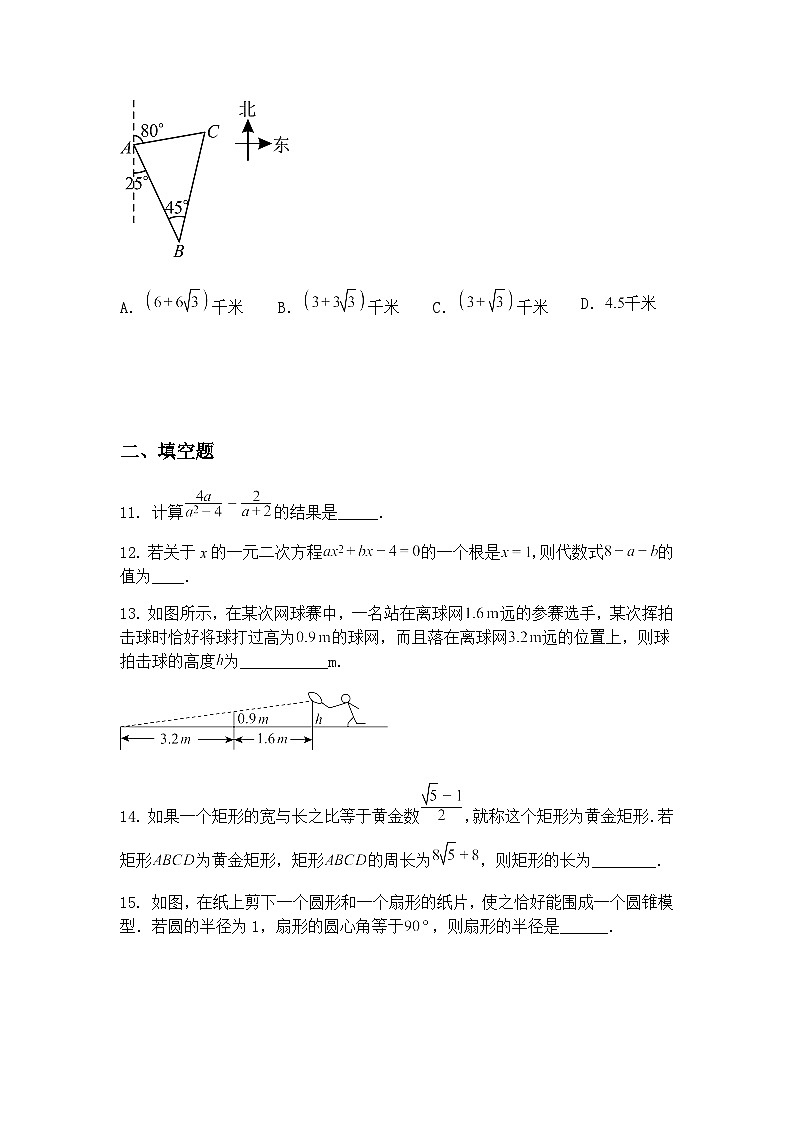 北
80°
C
A
东
25°
45°
B
A. (6+6√3)千米 B. (3+3√3)千米 C. (3+√3)千米 D. 4.5千米
二、填空题
11. 计算4a/(a²−4) − 2/(a+2)的结果是_____.
12. 若关于 x 的一元二次方程ax²+bx−4=0的一个根是x=1,则代数式8−a−b的
值为____.
13. 如图所示，在某次网球赛中，一名站在离球网1.6m远的参赛选手，某次挥拍
击球时恰好将球打过高为0.9m的球网，而且落在离球网3.2m远的位置上，则球
拍击球的高度h为___________m.
0.9m h
3.2m 1.6m
14. 如果一个矩形的宽与长之比等于黄金数(√5−1)/2,就称这个矩形为黄金矩形.若
矩形ABCD为黄金矩形，矩形ABCD的周长为8√5+8，则矩形的长为________.
15. 如图，在纸上剪下一个圆形和一个扇形的纸片，使之恰好能围成一个圆锥模
型. 若圆的半径为 1, 扇形的圆心角等于90°, 则扇形的半径是______.